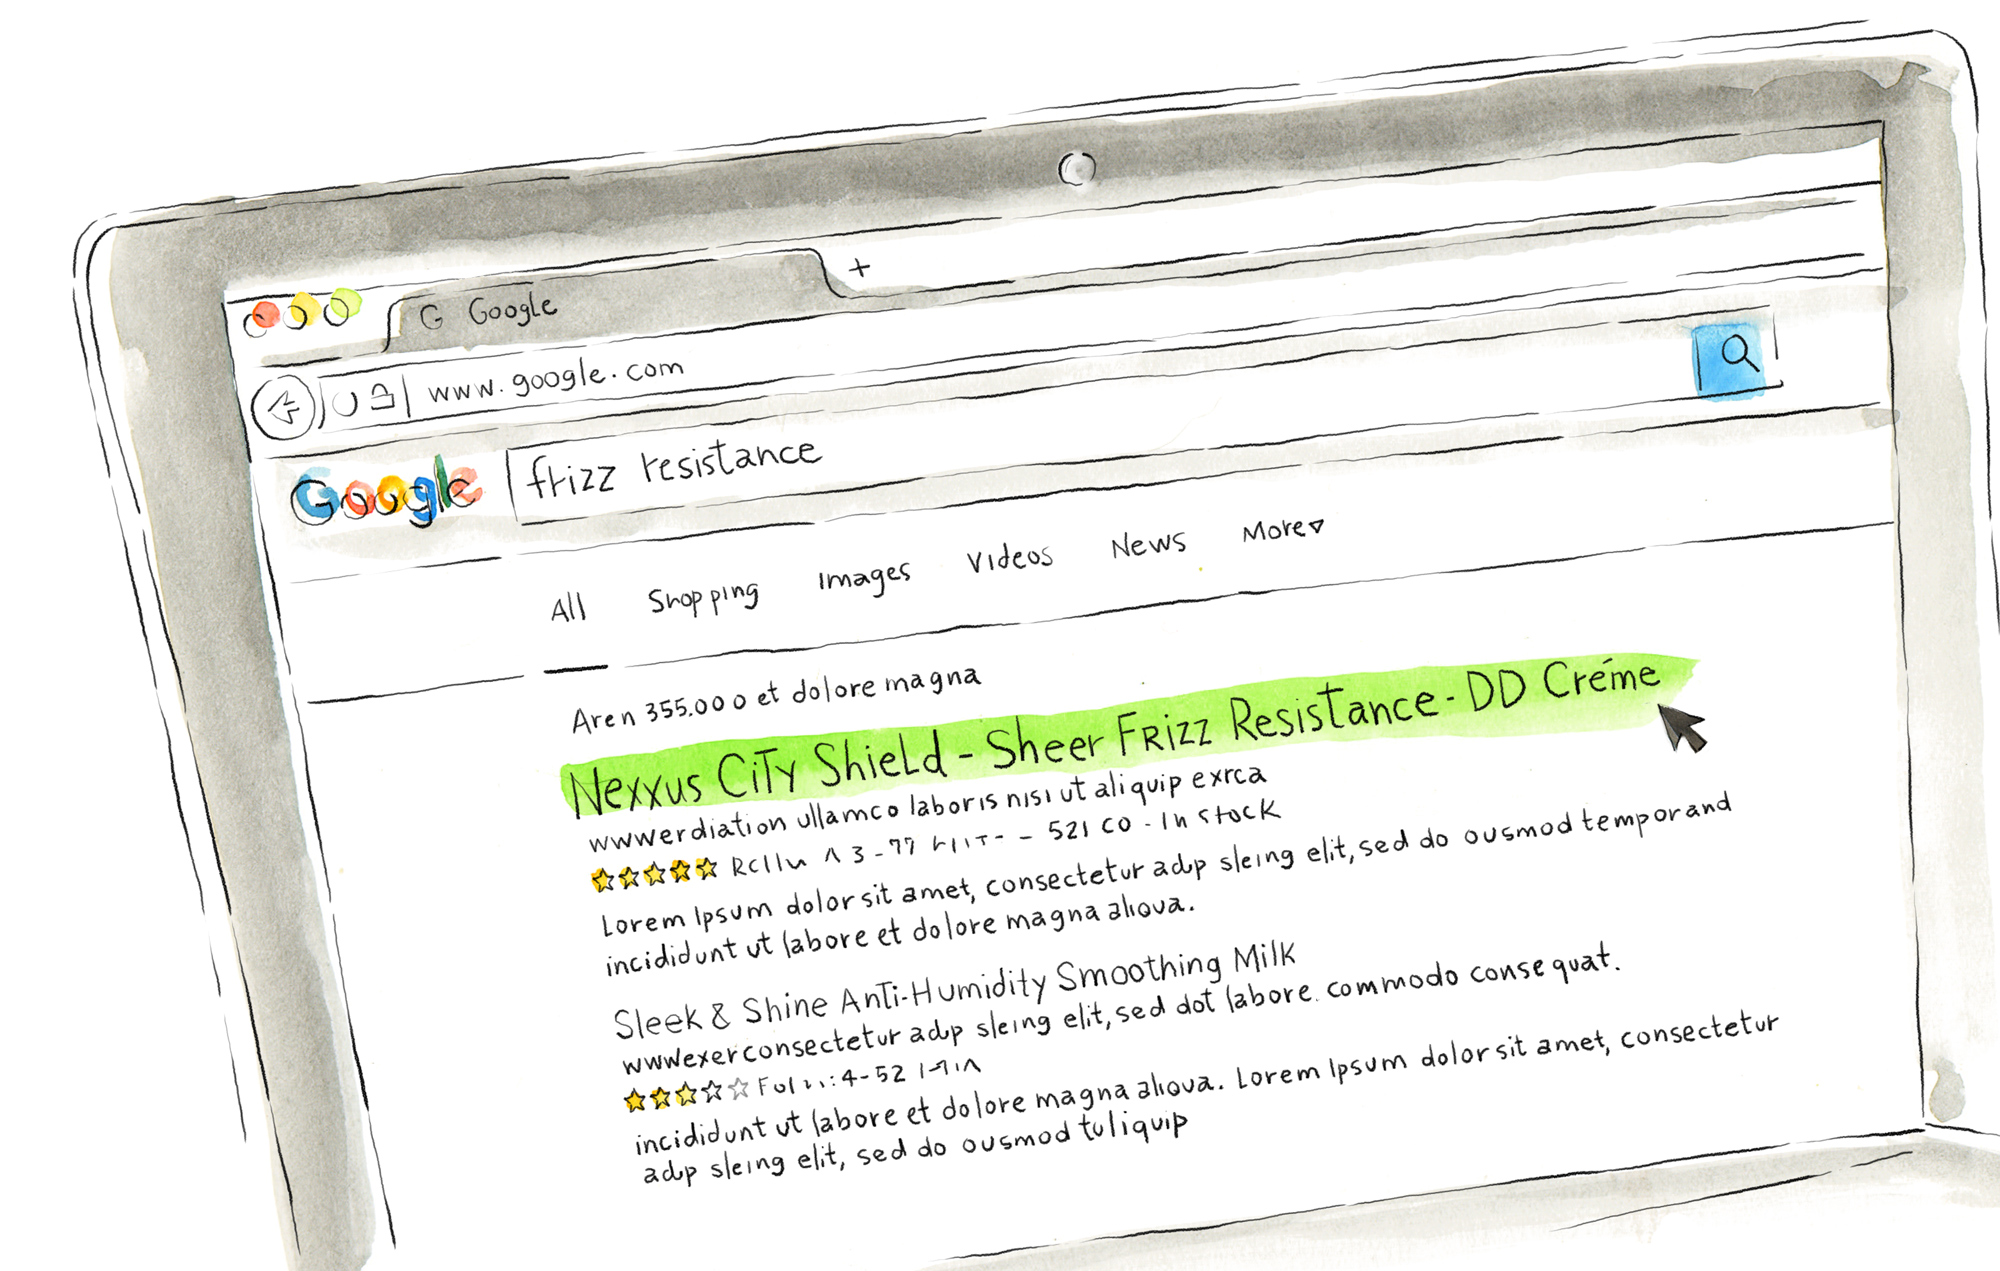 G Google
+
www.google.com
Google frizz resistance
All Shopping Images Videos News More
Aren 355.000 et dolore magna
Nexxus City Shield - Sheer Frizz Resistance - DD Créme
wwwerdiation ullamco laboris nisi ut aliquip exrca
3-77 - 521 CO - In stock
Lorem Ipsum dolor sit amet, consectetur adip sleing elit, sed do ousmod temporand
incididunt ut labore et dolore magna aliova.
Sleek & Shine Anti-Humidity Smoothing Milk
wwwexerconsectetur adip sleing elit, sed dot labore. commodo consequat.
4-52
incididunt ut labore et dolore magna aliova. Lorem Ipsum dolor sit amet, consectetur
adip sleing elit, sed do ousmod tuliquip